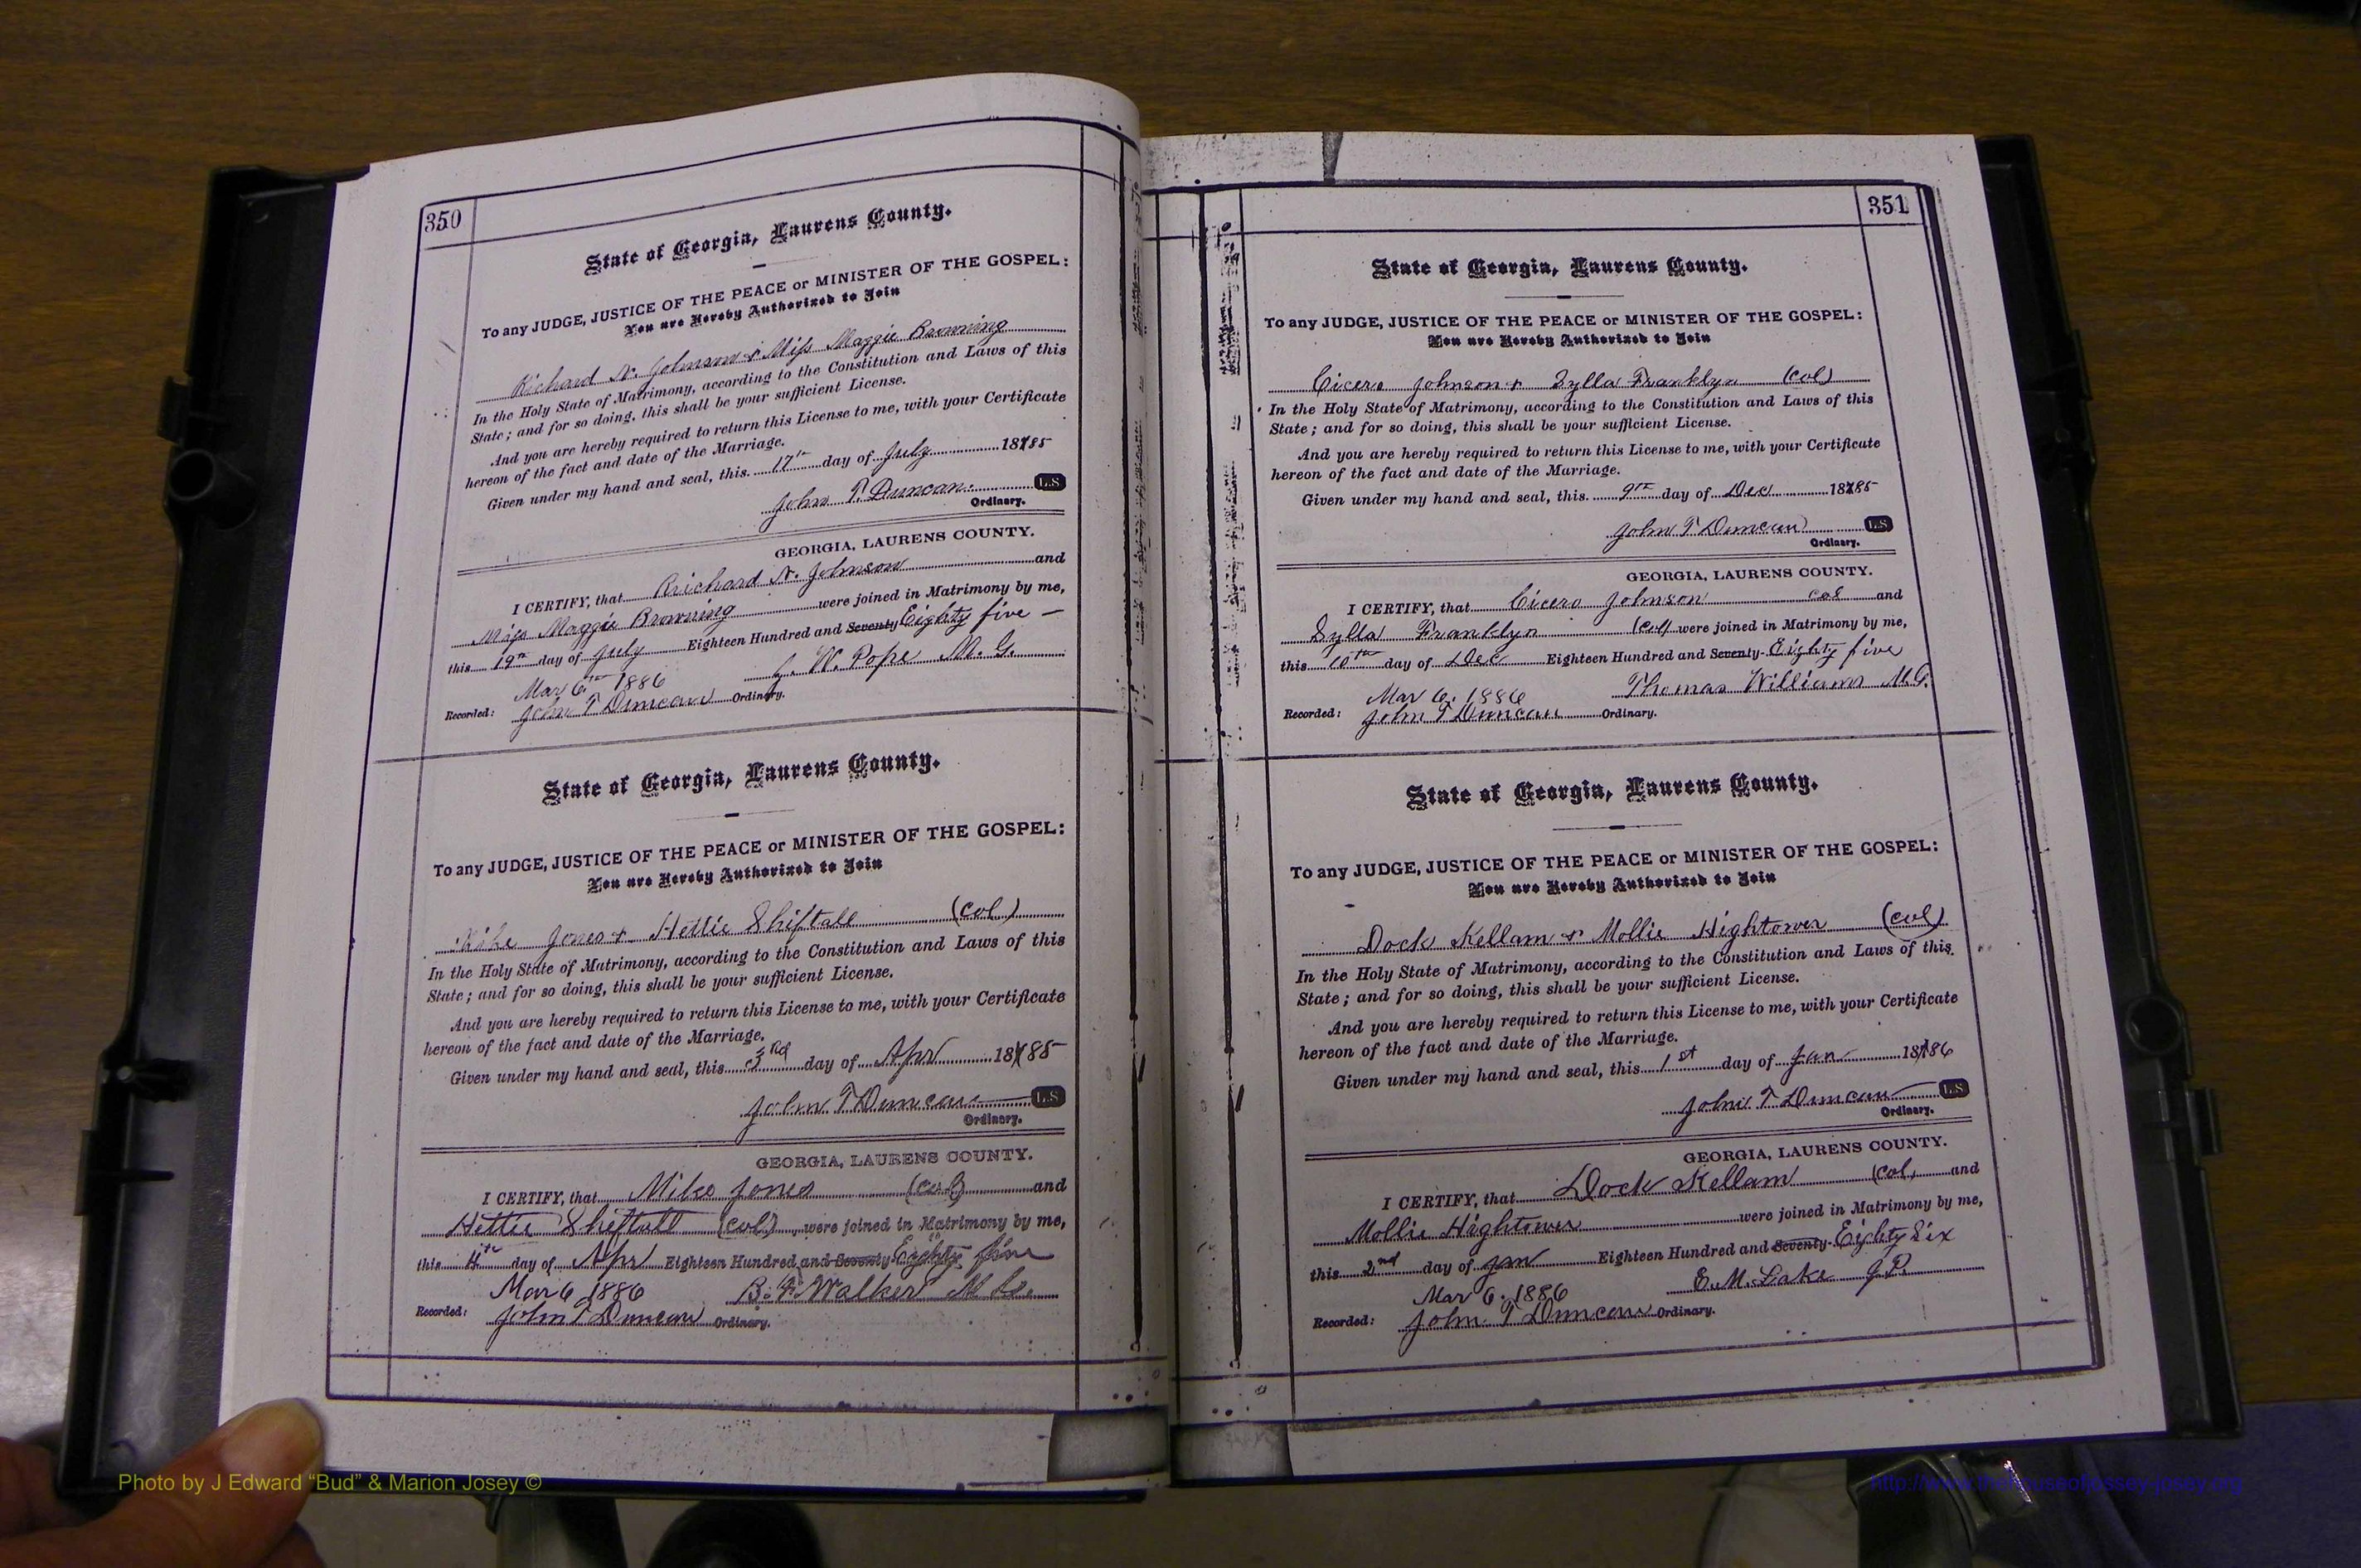 350
State of Georgia, Laurens County.
To any JUDGE, JUSTICE OF THE PEACE or MINISTER OF THE GOSPEL:
You are Hereby Authorized to Join
Richard N. Johnson & Miss Maggie Browning
In the Holy State of Matrimony, according to the Constitution and Laws of this
State; and for so doing, this shall be your sufficient License.
And you are hereby required to return this License to me, with your Certificate
hereon of the fact and date of the Marriage.
Given under my hand and seal, this 17th day of July 18785
John T Duncan. L.S
Ordinary.
GEORGIA, LAURENS COUNTY.
I CERTIFY, that Richard N. Johnson and
Miss Maggie Browning were joined in Matrimony by me,
this 19th day of July Eighteen Hundred and Seventy Eighty five
J. W. Pope M. G.
Mar 6th 1886
Recorded: John T Duncan Ordinary.
State of Georgia, Laurens County.
To any JUDGE, JUSTICE OF THE PEACE or MINISTER OF THE GOSPEL:
You are Hereby Authorized to Join
Mike Jones & Hettie Shiftall (col)
In the Holy State of Matrimony, according to the Constitution and Laws of this
State; and for so doing, this shall be your sufficient License.
And you are hereby required to return this License to me, with your Certificate
hereon of the fact and date of the Marriage.
Given under my hand and seal, this 3rd day of Apr 18785
John T Duncan L.S
Ordinary.
GEORGIA, LAURENS COUNTY.
I CERTIFY, that Mike Jones (col) and
Hettie Shiftall (col) were joined in Matrimony by me,
this 4th day of Apr Eighteen Hundred and Seventy Eighty five
Mar 6 1886 B. F. Walker M.G.
Recorded: John T Duncan Ordinary.
351
State of Georgia, Laurens County.
To any JUDGE, JUSTICE OF THE PEACE or MINISTER OF THE GOSPEL:
You are Hereby Authorized to Join
Cicero Johnson & Sylla Franklyn (col)
In the Holy State of Matrimony, according to the Constitution and Laws of this
State; and for so doing, this shall be your sufficient License.
And you are hereby required to return this License to me, with your Certificate
hereon of the fact and date of the Marriage.
Given under my hand and seal, this 9th day of Dec 18785
John T Duncan L.S
Ordinary.
GEORGIA, LAURENS COUNTY.
I CERTIFY, that Cicero Johnson col and
Sylla Franklyn (col) were joined in Matrimony by me,
this 10th day of Dec Eighteen Hundred and Seventy- Eighty five
Mar 6. 1886 Thomas Williams M.G.
Recorded: John T Duncan Ordinary.
State of Georgia, Laurens County.
To any JUDGE, JUSTICE OF THE PEACE or MINISTER OF THE GOSPEL:
You are Hereby Authorized to Join
Dock Kellam & Mollie Hightower (col)
In the Holy State of Matrimony, according to the Constitution and Laws of this
State; and for so doing, this shall be your sufficient License.
And you are hereby required to return this License to me, with your Certificate
hereon of the fact and date of the Marriage.
Given under my hand and seal, this 1st day of Jan 18786
John T Duncan L.S
Ordinary.
GEORGIA, LAURENS COUNTY.
I CERTIFY, that Dock Kellam (col) and
Mollie Hightower were joined in Matrimony by me,
this 2nd day of Jan Eighteen Hundred and Seventy- Eighty Six
Mar 6. 1886 E. M. Lake J.P.
Recorded: John T Duncan Ordinary.
Photo by J Edward “Bud” & Marion Josey ©
http://www.thehouseofjossey-josey.org